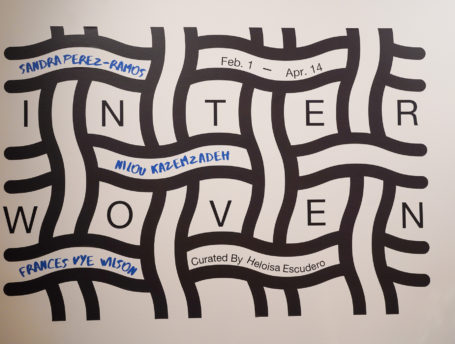 SANDRA PEREZ-RAMOS
Feb. 1 — Apr. 14
INTER
NILOU KAZEMZADEH
WOVEN
FRANCES VYE WILSON
Curated By Heloisa Escudero